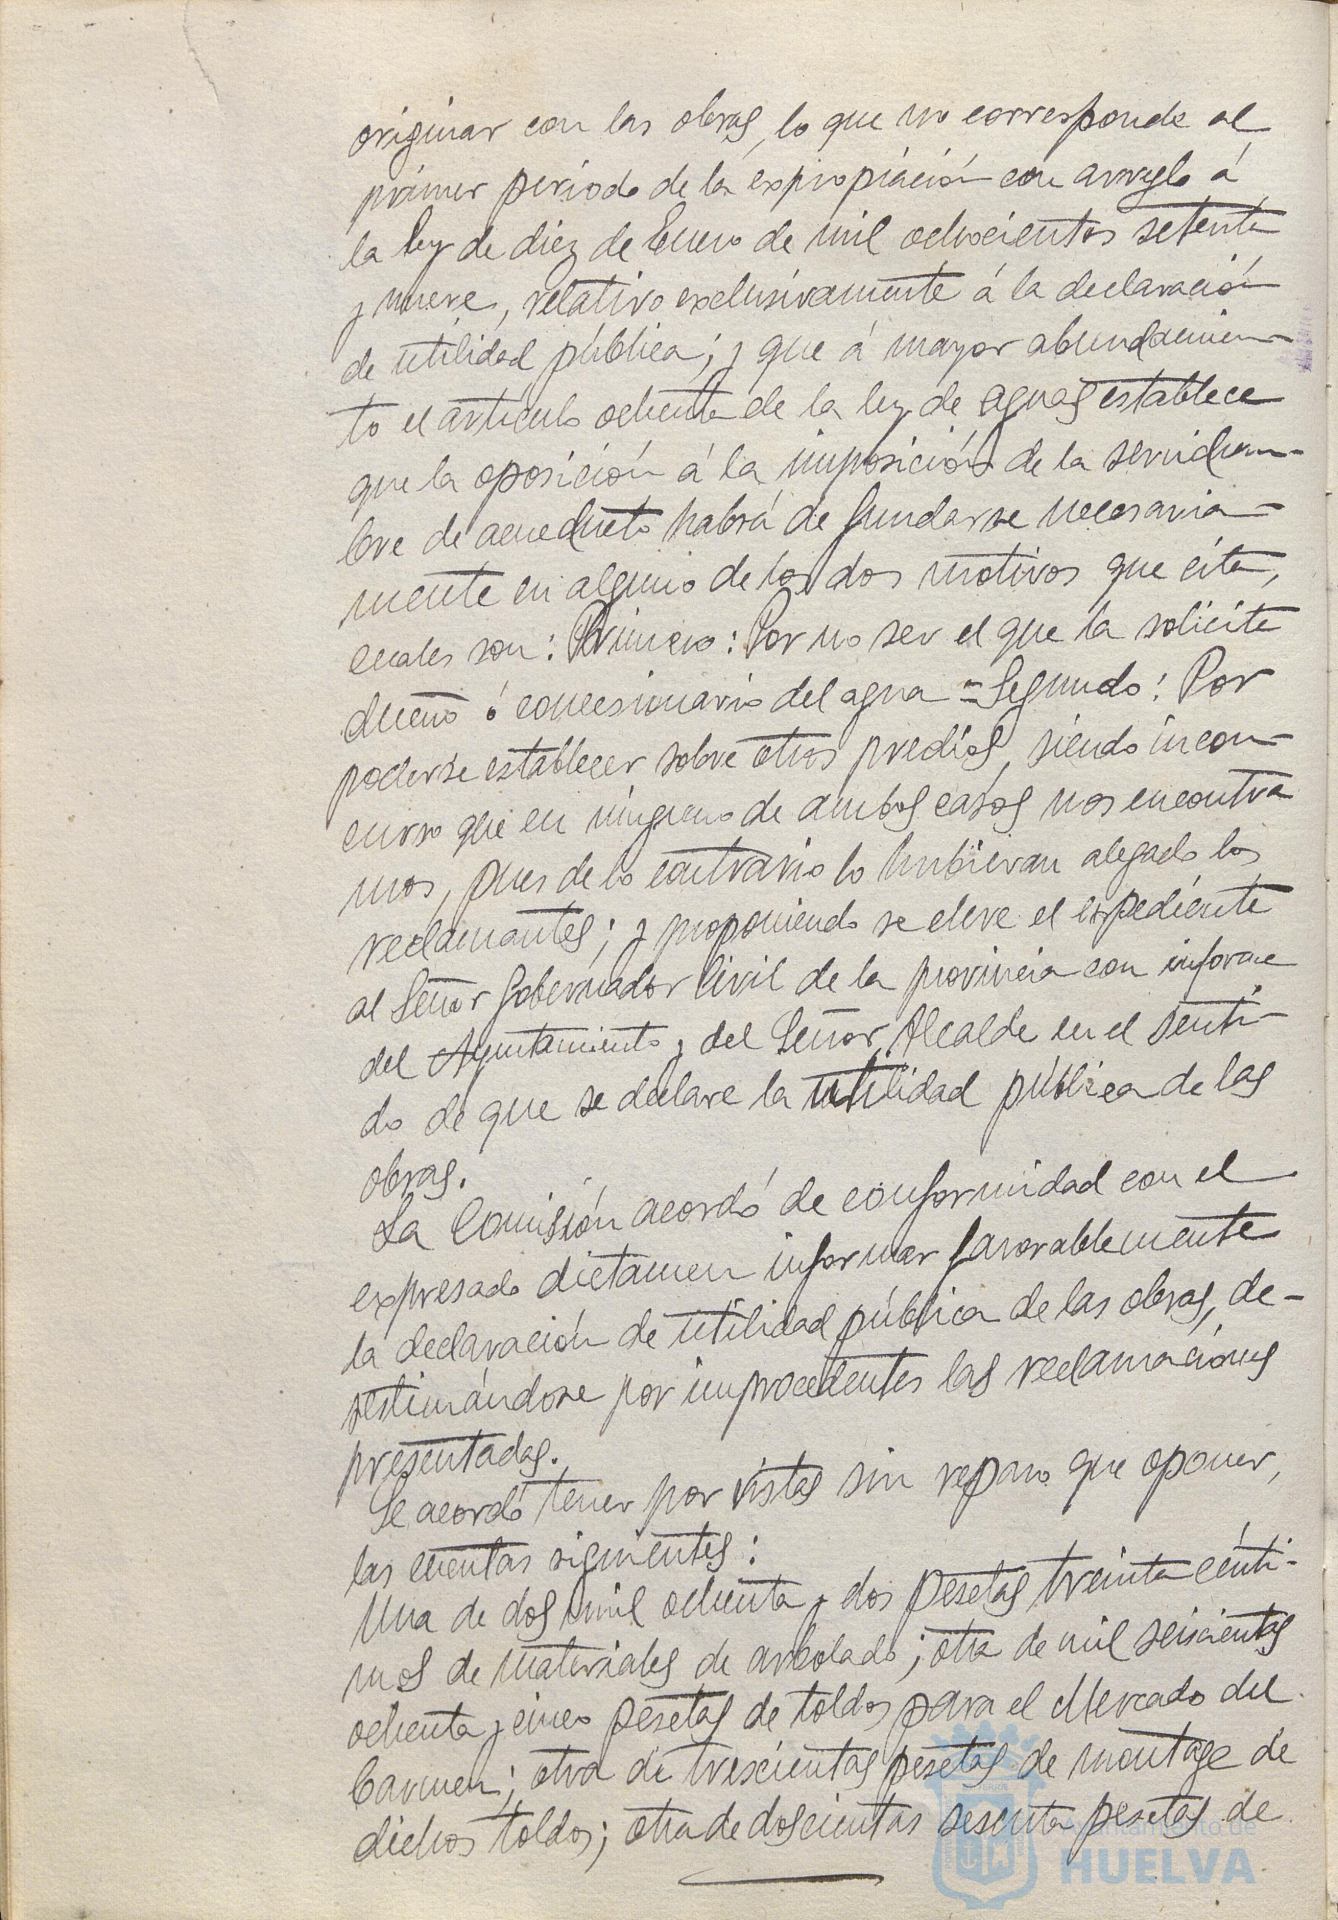 originar con las obras, lo que no corresponde al
primer período de la expropiación con arreglo á
la ley de diez de Enero de mil ochocientos setenta
y nueve, relativo exclusivamente á la declaración
de utilidad pública; y que á mayor abundamien-
to el artículo ochenta de la ley de aguas establece
que la oposición á la imposición de la servidum-
bre de acueducto habrá de fundarse necesaria-
mente en alguno de los dos motivos que cita,
cuales son: Primero: Por no ser el que la solicite
dueño ó concesionario del agua = Segundo: Por
poderse establecer sobre otros predios, siendo incon-
curso que en ninguno de ambos casos nos encontra
mos, pues de lo contrario lo hubieran alegado los
reclamantes; y proponiendo se eleve el expediente
al Señor Gobernador Civil de la provincia con informe
del Ayuntamiento y del Señor Alcalde en el senti-
do de que se declare la utilidad pública de las
obras.
La Comisión acordó de conformidad con el
expresado dictamen informar favorablemente
la declaración de utilidad pública de las obras, de-
sestimándose por improcedentes las reclamaciones
presentadas.
Se acordó tener por vistas sin reparo que oponer,
las cuentas siguientes:
Una de dos mil ochenta y dos pesetas treinta cénti-
mos de materiales de arbolado; otra de mil seiscientas
ochenta y cinco pesetas de toldos para el Mercado del
Carmen; otra de trescientas pesetas de montage de
dichos toldos; otra de doscientas sesenta pesetas de
Ayuntamiento de
HUELVA